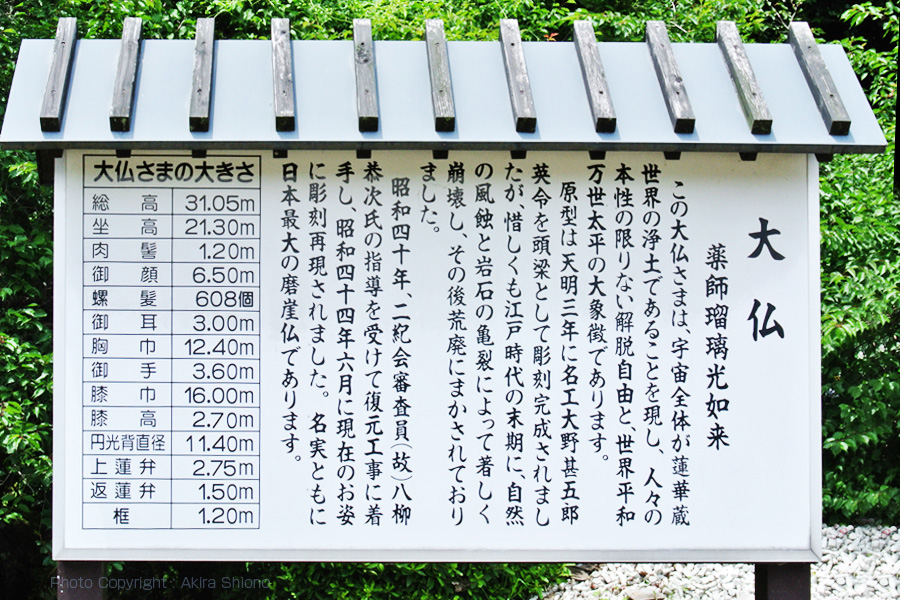 大仏
薬師瑠璃光如来
この大仏さまは、宇宙全体が蓮華蔵
世界の浄土であることを現し、人々の
本性の限りない解脱自由と、世界平和
万世太平の大象徴であります。
原型は天明三年に名工大野甚五郎
英令を頭梁として彫刻完成されまし
たが、惜しくも江戸時代の末期に、自然
の風蝕と岩石の亀裂によって著しく
崩壊し、その後荒廃にまかされており
ました。
昭和四十年、二紀会審査員(故)八柳
恭次氏の指導を受けて復元工事に着
手し、昭和四十四年六月に現在のお姿
に彫刻再現されました。名実ともに
日本最大の磨崖仏であります。
大仏さまの大きさ
総高 31.05m
坐高 21.30m
肉髻 1.20m
御顔 6.50m
螺髪 608個
御耳 3.00m
胸巾 12.40m
御手 3.60m
膝巾 16.00m
膝高 2.70m
円光背直径 11.40m
上蓮弁 2.75m
返蓮弁 1.50m
框 1.20m
Photo Copyright : Akira Shiono